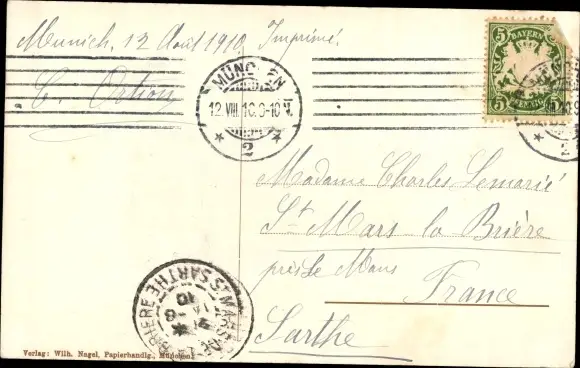 Munich, 12 Août 1910 Imprimé.
BAYERN
5 5
PFENNIG
MÜNCHEN
12.VIII.10.9-10 V.
* 2 *
Madame Charles Lemarié
St Mars la Brière
près Le Mans
France
Sarthe
SARTHE
Verlag: Wilh. Nagel, Papierhandlg., München.